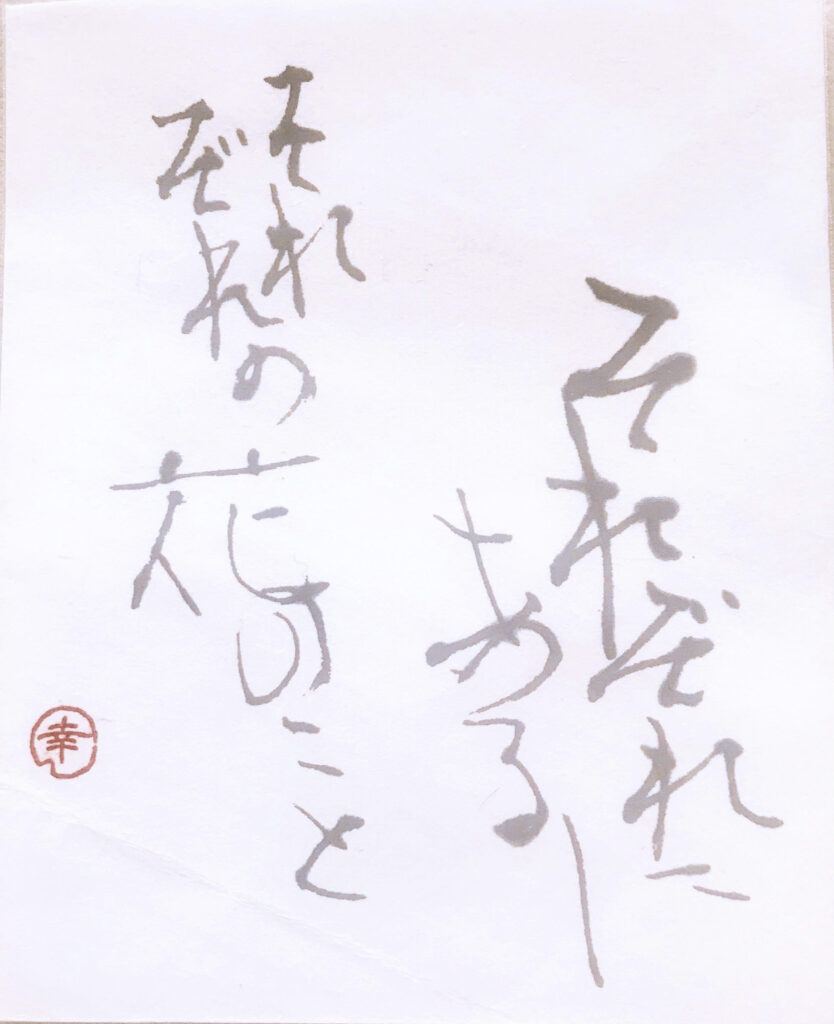 それぞれに
あるし
それぞれの
花のこと
幸